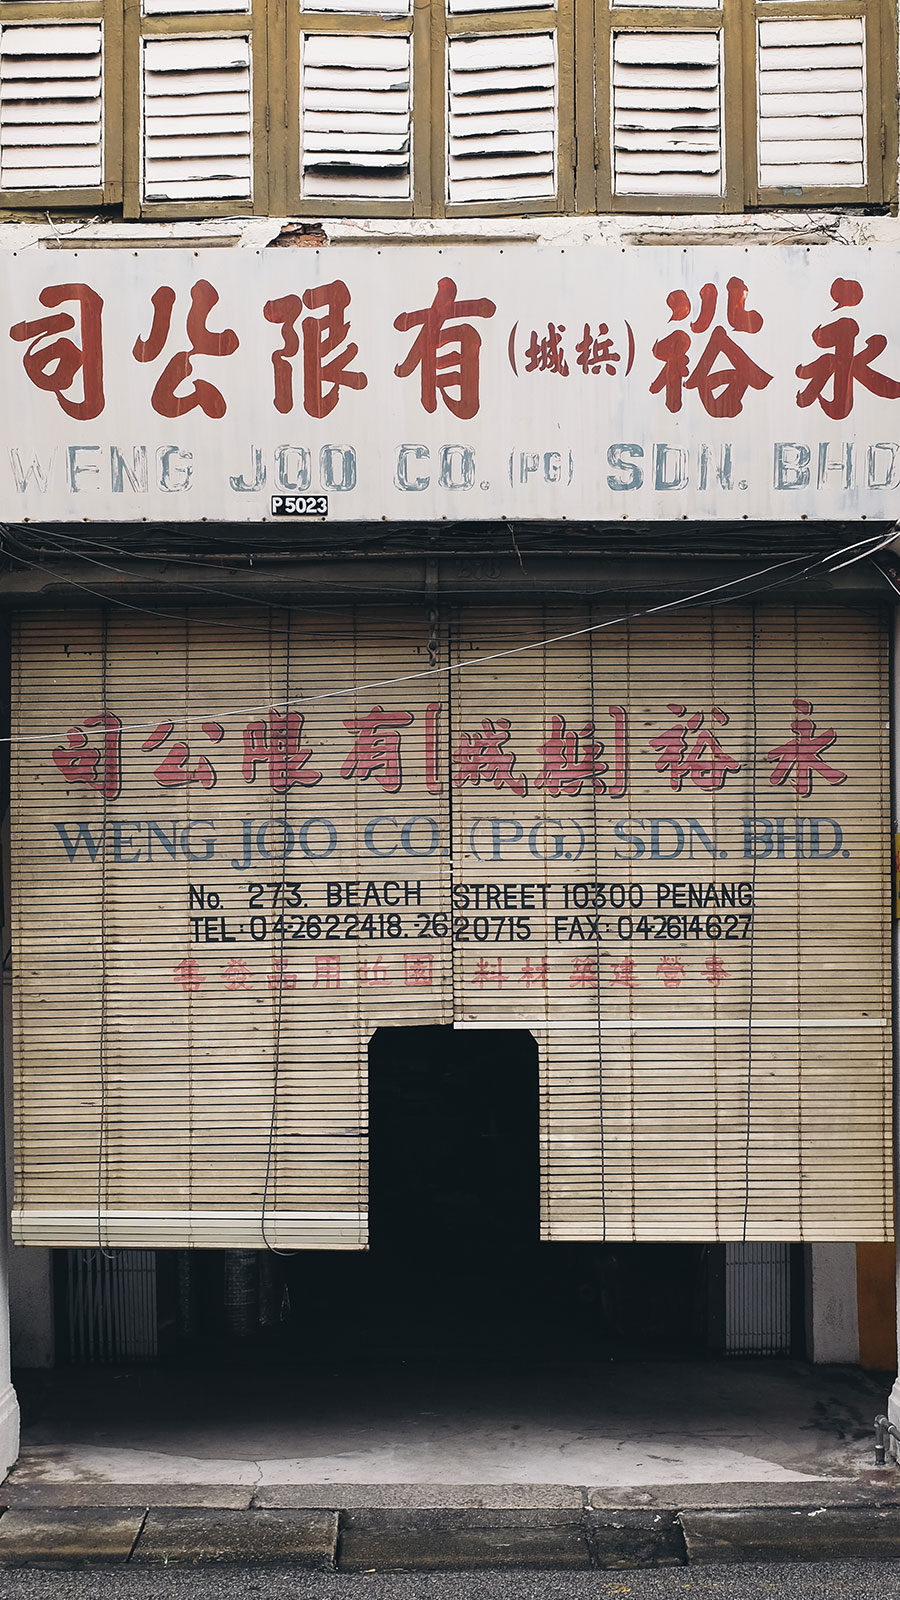 永裕(梹城)有限公司
WENG JOO CO. (PG) SDN. BHD
P5023
永裕[梹城]有限公司
WENG JOO CO. (PG.) SDN. BHD.
No. 273. BEACH STREET 10300 PENANG
TEL: 04-2622418. -2620715 FAX: 04-2614627
專營建築材料 園坵用品發售